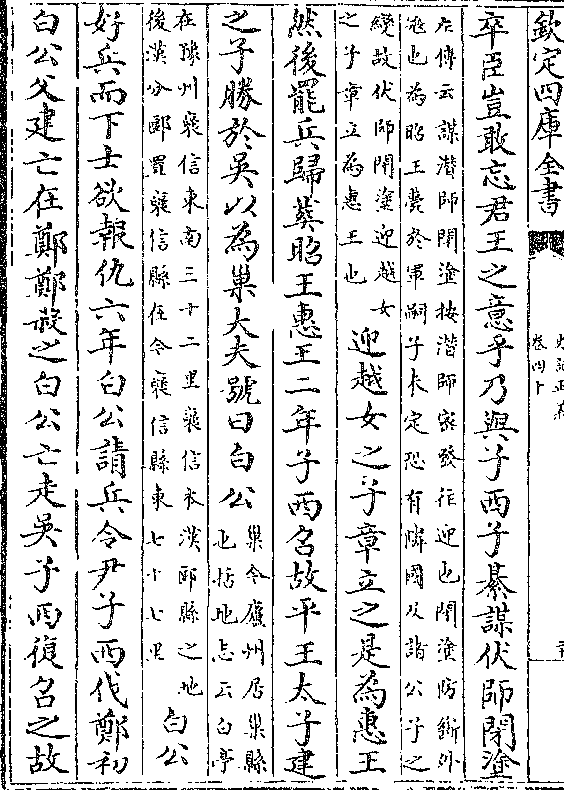 欽定四庫全書
史記正義
卷四十
卒臣豈敢忘君王之意乎乃與子西子綦謀伏師閉塗
左傳云謀潛師閉塗按潛師密發往迎也閉塗防斷外
寇也為昭王薨於軍嗣子未定恐有隣國及諸公子之
變故伏師閉塗迎越女
之子章立為惠王也
迎越女之子章立之是為惠王
然後罷兵歸葬昭王惠王二年子西召故平王太子建
之子勝於吳以為巢大夫號曰白公
巢今廬州居巢縣
也括地志云白亭
在豫州襃信東南三十二里襃信本漢郾縣之地
後漢分郾置襃信縣在今襃信縣東七十七里
白公
好兵而下士欲報仇六年白公請兵令尹子西伐鄭初
白公父建亡在鄭鄭殺之白公亡走吳子西復召之故